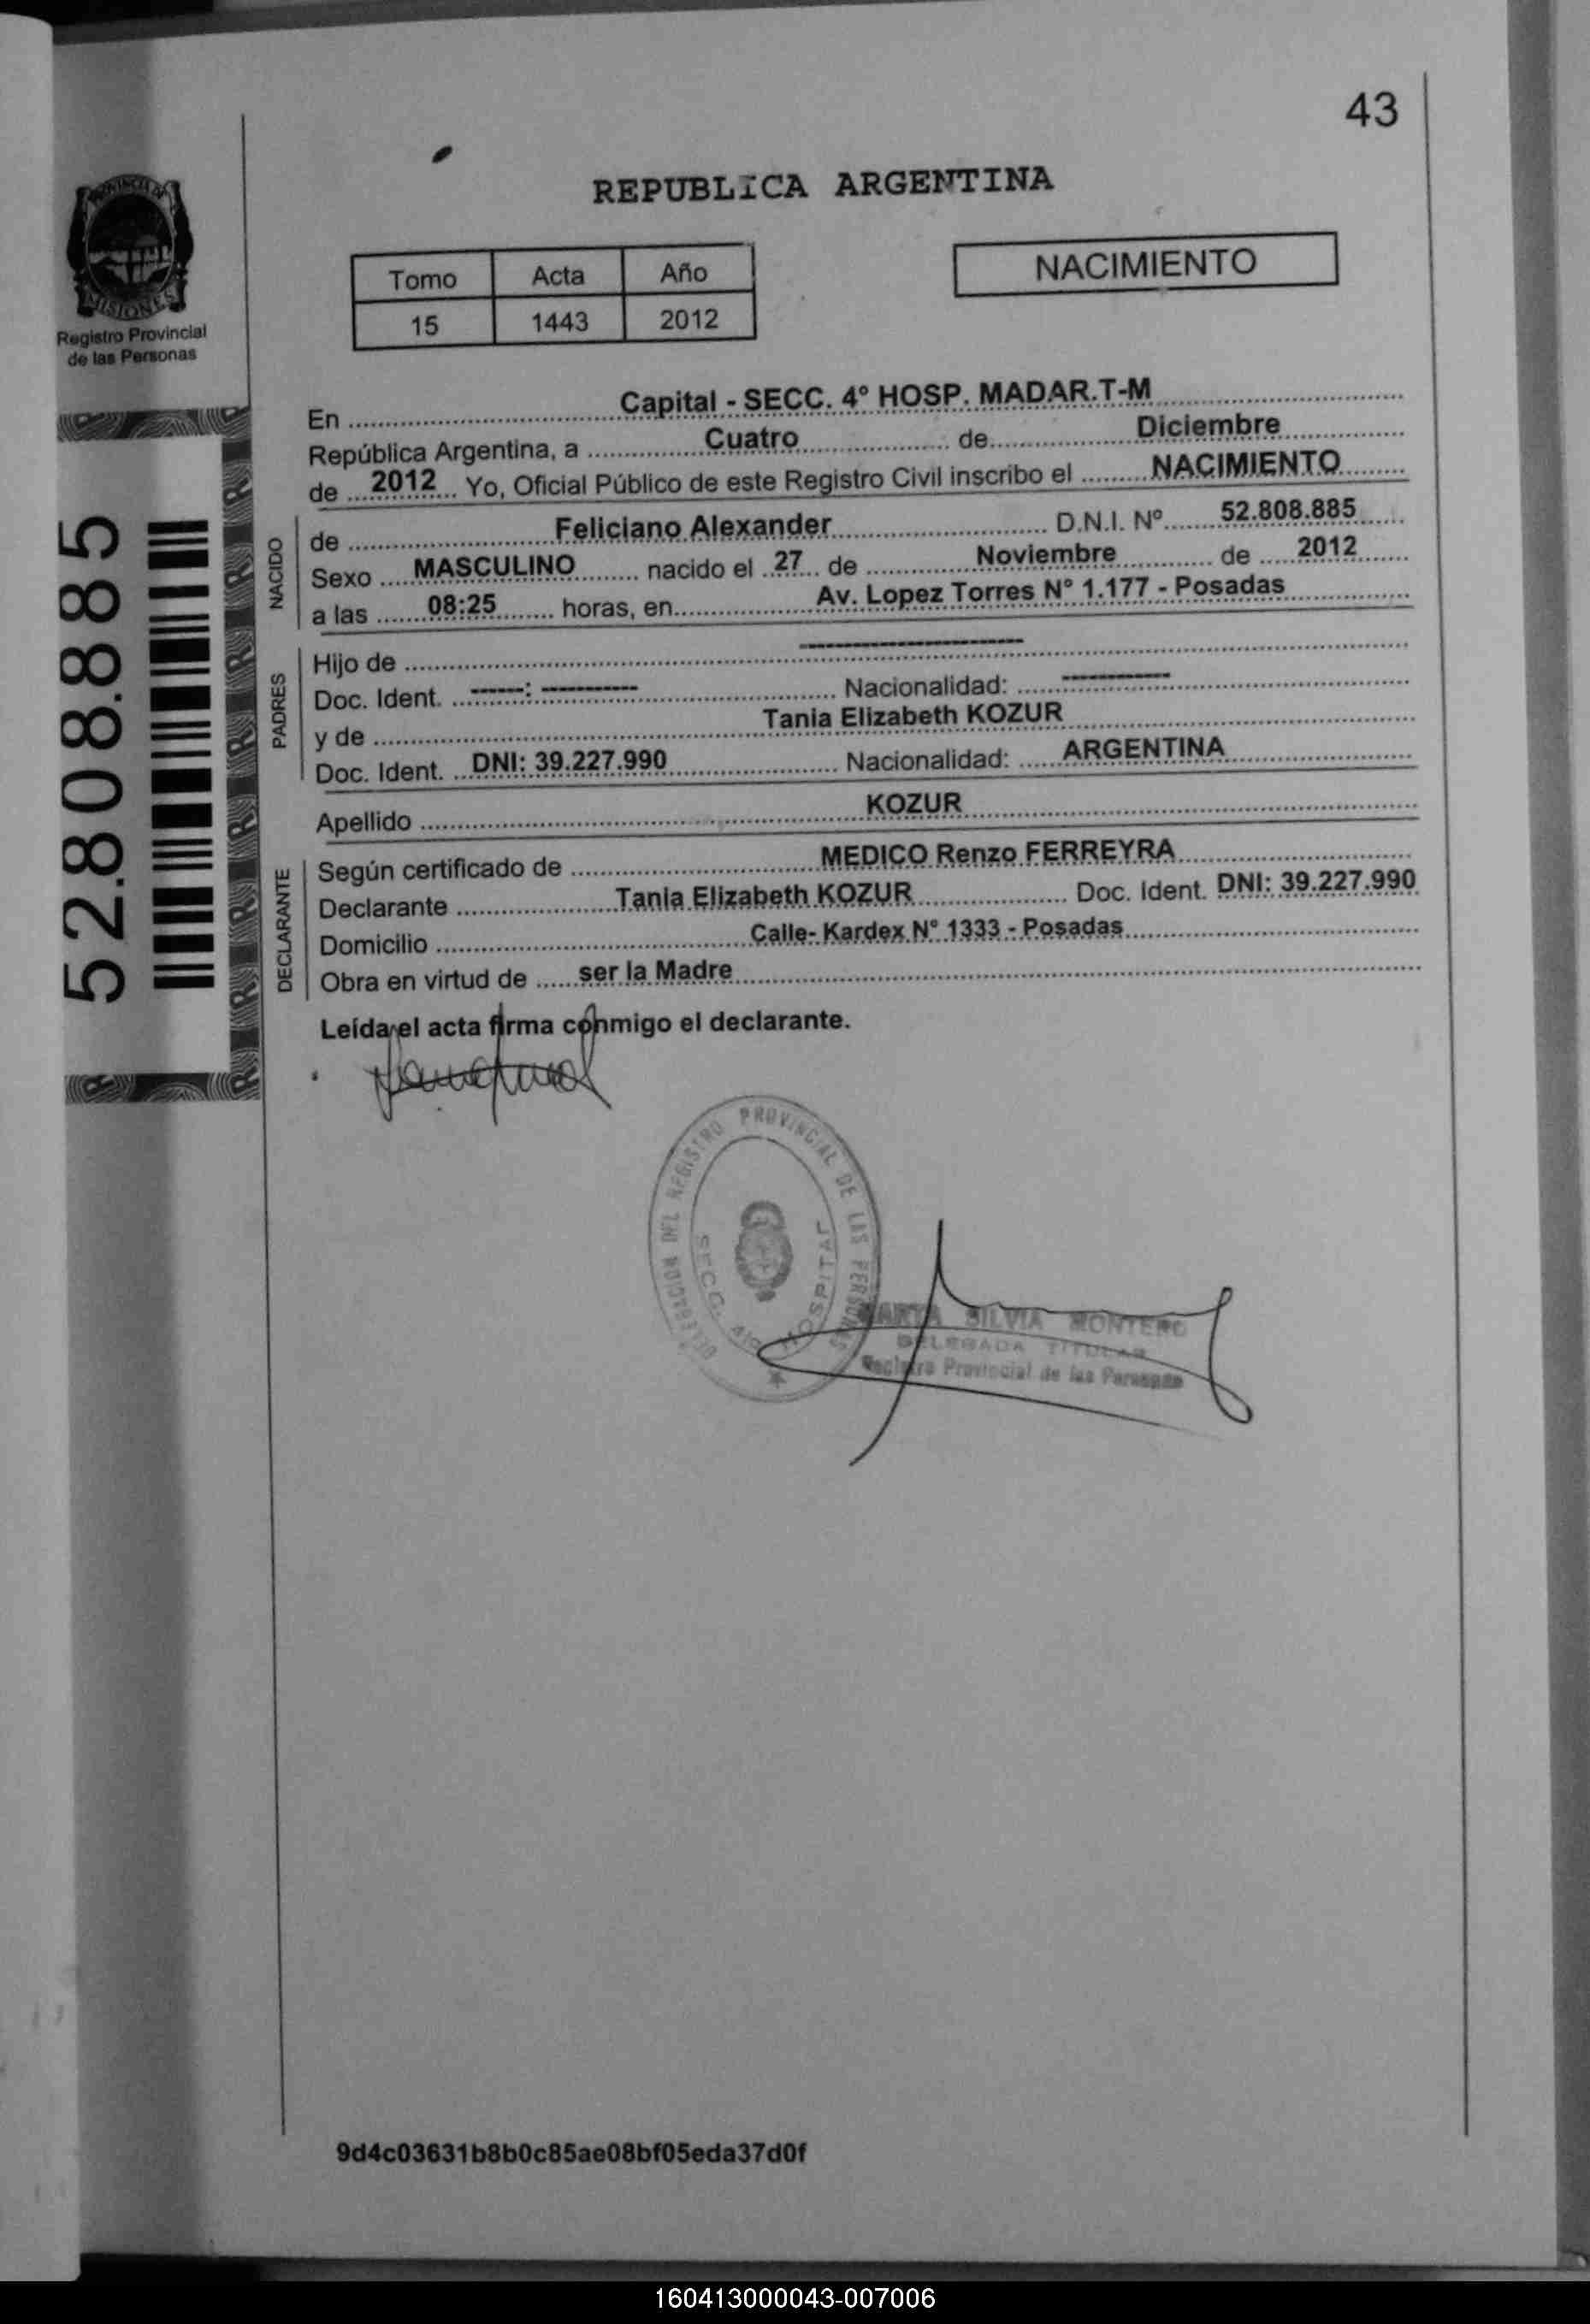 43
PROVINCIA DE
MISIONES
Registro Provincial
de las Personas
REPUBLICA ARGENTINA
Tomo Acta Año
15 1443 2012
NACIMIENTO
52.808.885
En Capital - SECC. 4° HOSP. MADAR.T-M
República Argentina, a Cuatro de Diciembre
de 2012 Yo, Oficial Público de este Registro Civil inscribo el NACIMIENTO
NACIDO
de Feliciano Alexander D.N.I. Nº 52.808.885
Sexo MASCULINO nacido el 27 de Noviembre de 2012
a las 08:25 horas, en Av. Lopez Torres N° 1.177 - Posadas
PADRES
Hijo de --------------------
Doc. Ident. ------: ---------- Nacionalidad: ----------
y de Tania Elizabeth KOZUR
Doc. Ident. DNI: 39.227.990 Nacionalidad: ARGENTINA
Apellido KOZUR
DECLARANTE
Según certificado de MEDICO Renzo FERREYRA
Declarante Tania Elizabeth KOZUR Doc. Ident. DNI: 39.227.990
Domicilio Calle- Kardex N° 1333 - Posadas
Obra en virtud de ser la Madre
Leída el acta firma conmigo el declarante.
DELEGACION DEL REGISTRO PROVINCIAL DE LAS PERSONAS
SECC. HOSPITAL
MARTA SILVIA MONTERO
DELEGADA TITULAR
Registro Provincial de las Personas
9d4c03631b8b0c85ae08bf05eda37d0f
160413000043-007006